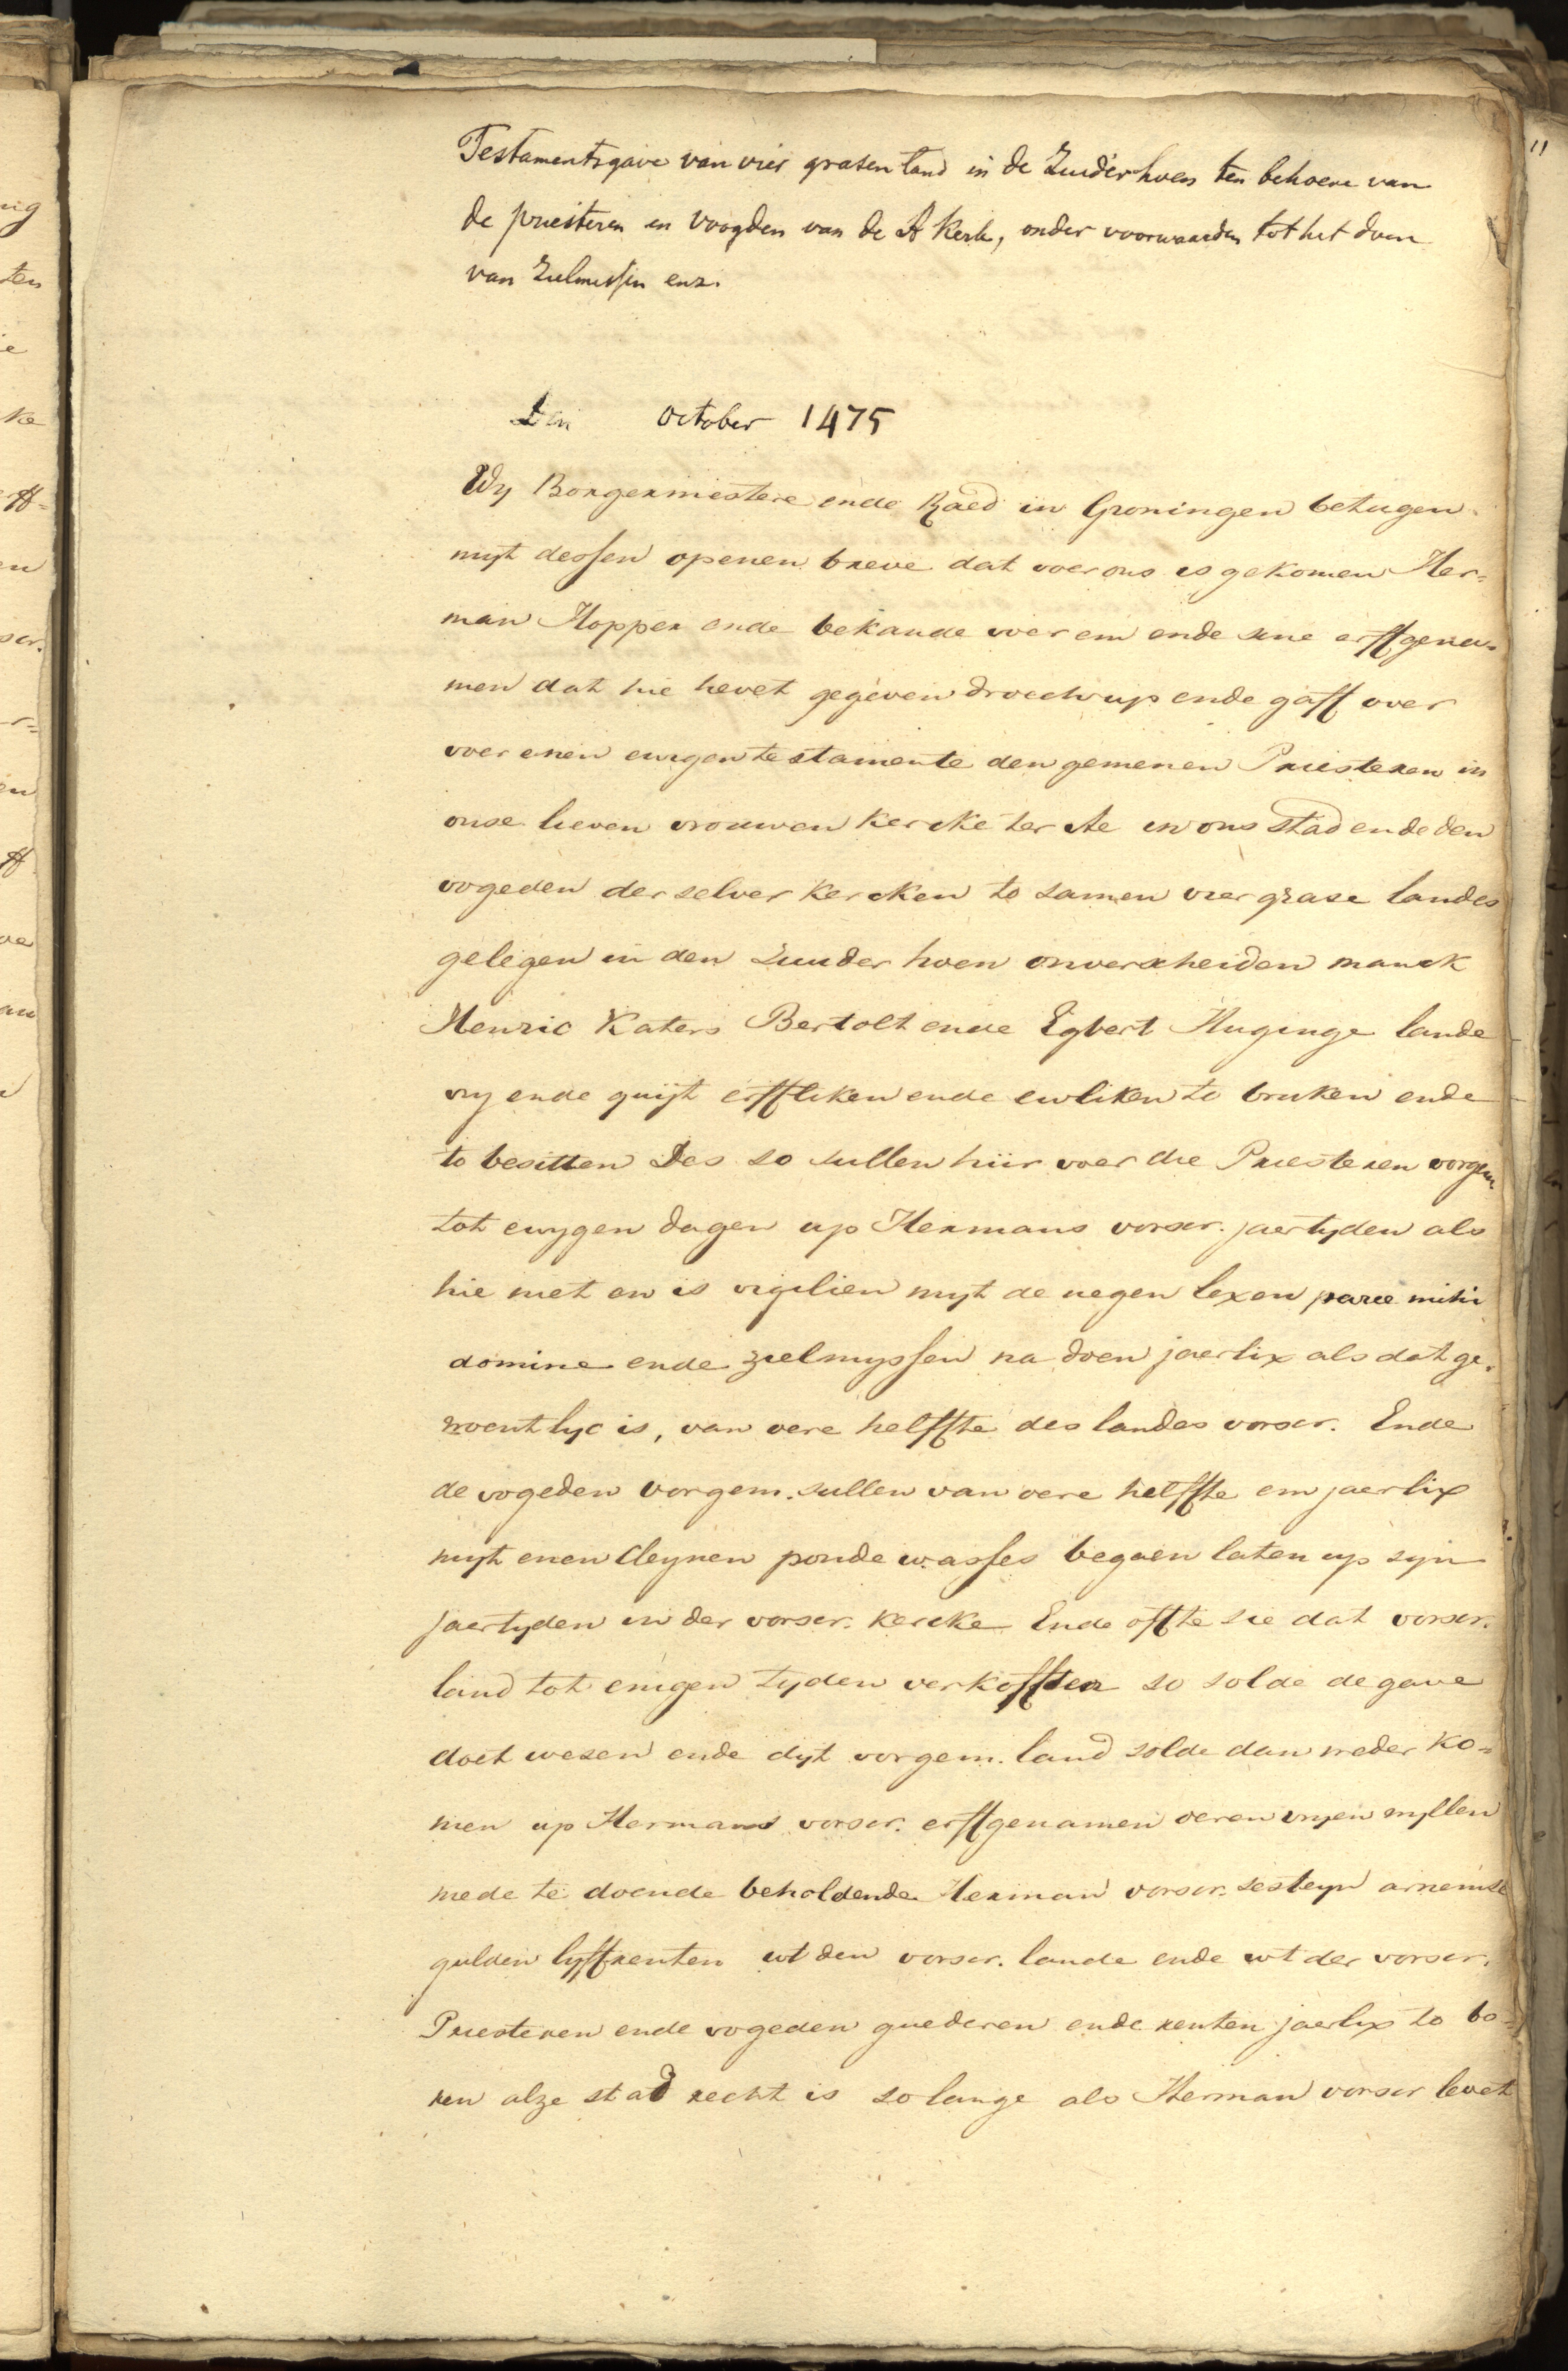 Testamentsgave van vier grasen land in de Zuiderhoen ten behoeve van
de priesteren en voogden van de A kerk, onder voorwaarden tot het doen
van Zielmissen enz.
Den October 1475
Wy Borgermestere ende Raed in Groningen betugen
myt dessen openen breve dat voer ons is gekomen Her=
man Hopper ende bekande voer em ende sine erffgena=
men dat hie hevet gegeven droech up ende gaff over
voer enen ewigen testamente den gemenen Priesteren in
onse lieven vrouwen kercke ter Ae in ons stad ende den
vogeden der selver kercken to samen vier grase landes
gelegen in den Zuuder hoen onverscheiden manck
Henric Katers Bertolt ende Egbert Huginge lande
vry ende quyt erffliken ende ewliken to bruken ende
to besitten Des so sullen hiir voer die Priesteren vorgem.
tot ewygen dagen up Hermans vorscr. jaertyden als
hie niet en is vigilien myt de negen lexen parce mihi
domine ende zielmyssen na doen jaerlix als dat ge=
woentlyc is, van oere helffte des landes vorscr. Ende
de vogeden vorgem. sullen van oere helffte em jaerlix
myt enen cleynen ponde wasses begaen laten up syn
jaertyden in der vorscr. kercke Ende offte sie dat vorscr.
land tot enigen tyden verkofften so solde de gave
doet wesen ende dyt vorgem. land solde dan weder ko=
men up Hermans vorscr. erffgenamen oeren vryen wyllen
mede te doende beholdende Herman vorscr. sesteyn arnemse
gulden lyffrenten wt den vorscr. lande ende wt der vorscr.
Priesteren ende vogeden guederen ende renten jaerlix to bo=
ren alze stad recht is so lange als Herman vorscr levet
11